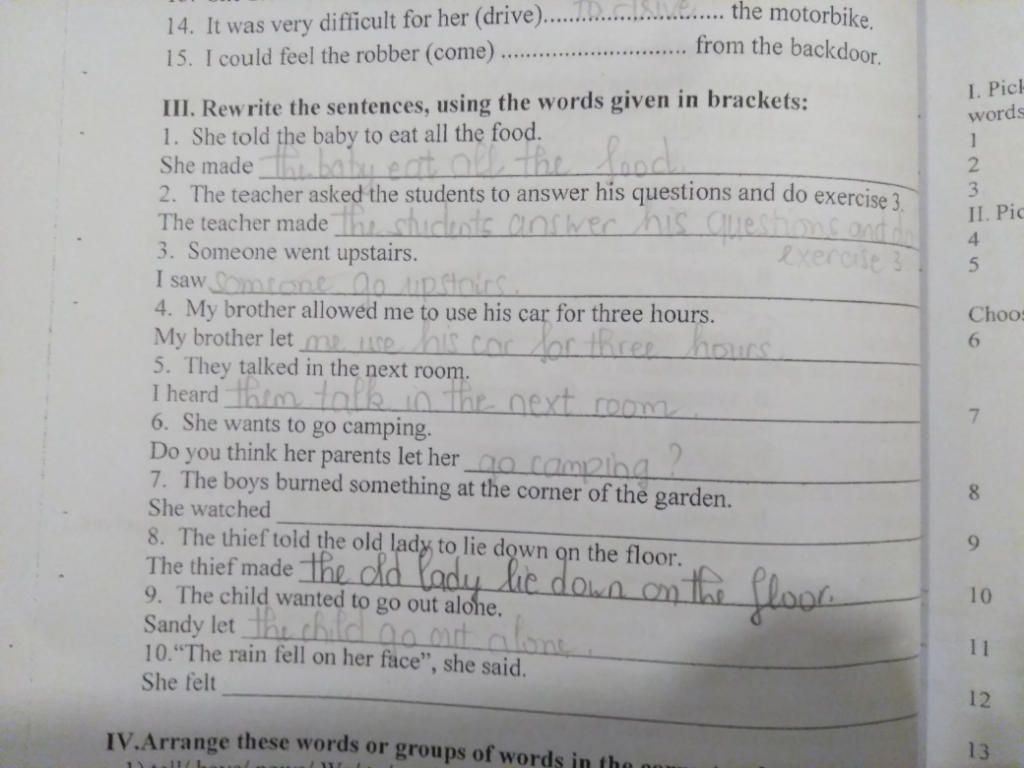 14. It was very difficult for her (drive)....to drive.... the motorbike.
15. I could feel the robber (come) ............................ from the backdoor.
III. Rewrite the sentences, using the words given in brackets:
1. She told the baby to eat all the food.
She made the baby eat all the food.
2. The teacher asked the students to answer his questions and do exercise 3.
The teacher made the students answer his questions and do
exercise 3
3. Someone went upstairs.
I saw someone go upstairs.
4. My brother allowed me to use his car for three hours.
My brother let me use his car for three hours.
5. They talked in the next room.
I heard them talk in the next room.
6. She wants to go camping.
Do you think her parents let her go camping?
7. The boys burned something at the corner of the garden.
She watched
8. The thief told the old lady to lie down on the floor.
The thief made the old lady lie down on the floor.
9. The child wanted to go out alone.
Sandy let the child go out alone.
10.“The rain fell on her face”, she said.
She felt
IV.Arrange these words or groups of words in the
I. Pick
words
1
2
3
II. Pic
4
5
Choos
6
7
8
9
10
11
12
13